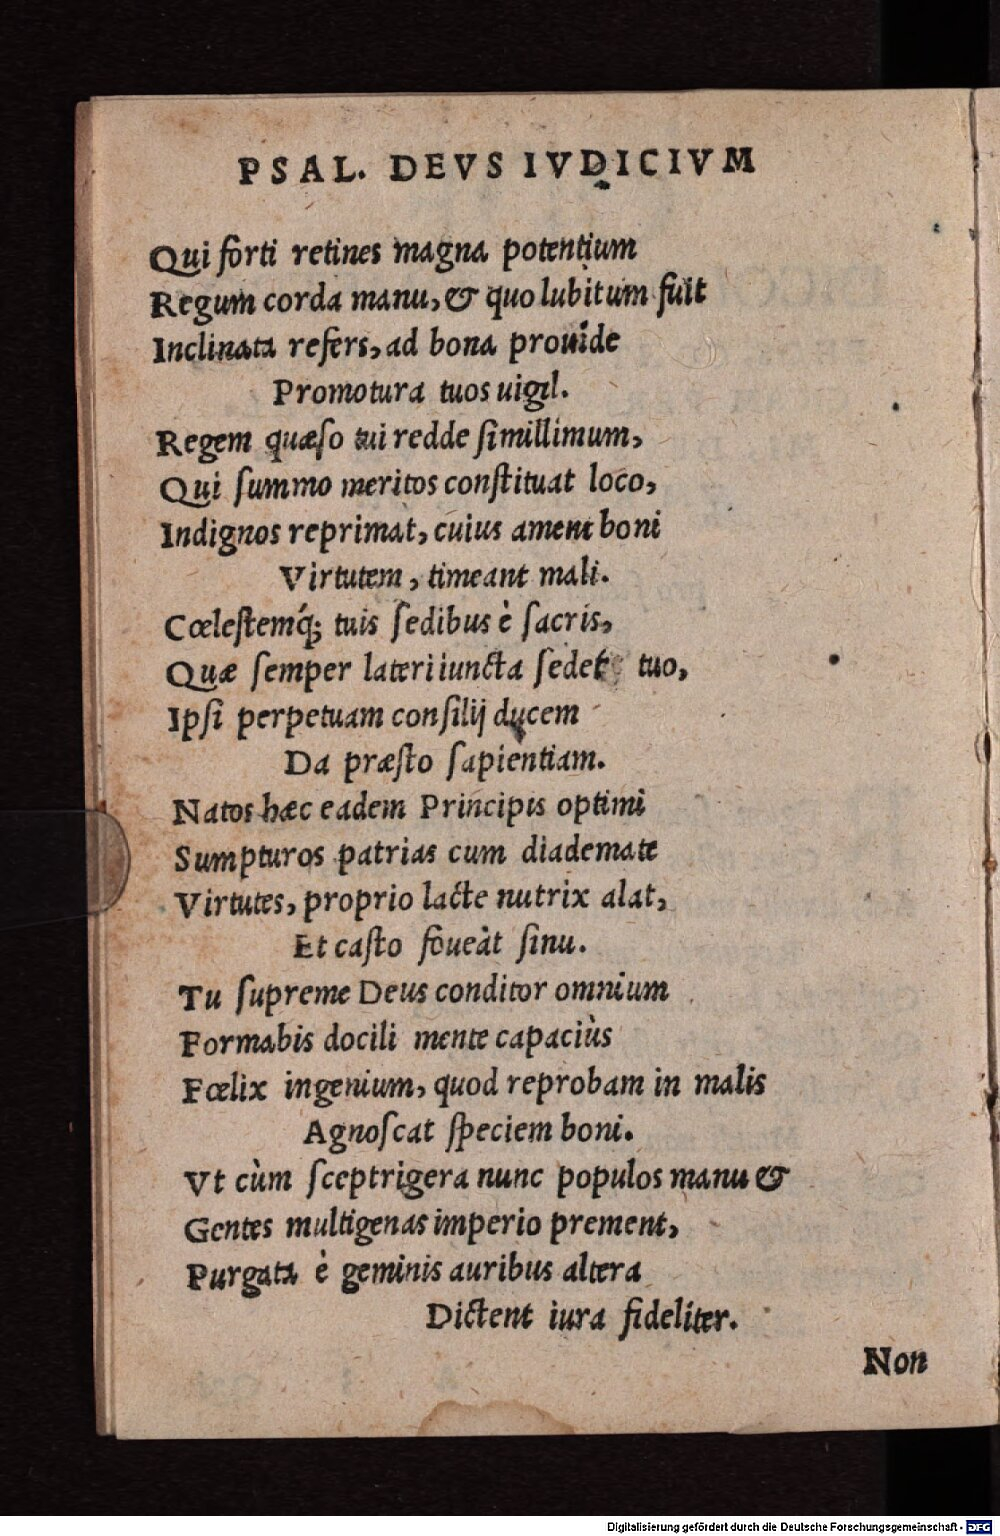 PSAL. DEVS IVDICIVM
Qui forti retines magna potentium
Regum corda manu, & quo lubitum fuit
Inclinata refers, ad bona prouide
Promotura tuos uigil.
Regem quæſo tui redde ſimillimum,
Qui ſummo meritos conſtituat loco,
Indignos reprimat, cuius ament boni
Virtutem, timeant mali.
Cœleſtemq́; tuis ſedibus è ſacris,
Quæ ſemper lateri iuncta ſedet tuo,
Ipſi perpetuam conſilij ducem
Da præſto ſapientiam.
Natos hæc eadem Principis optimi
Sumpturos patrias cum diademate
Virtutes, proprio lacte nutrix alat,
Et caſto foueàt ſinu.
Tu ſupreme Deus conditor omnium
Formabis docili mente capaciùs
Fœlix ingenium, quod reprobam in malis
Agnoſcat ſpeciem boni.
Vt cùm ſceptrigera nunc populos manu &
Gentes multigenas imperio prement,
Purgata è geminis auribus altera
Dictent iura fideliter.
Non
Digitalisierung gefördert durch die Deutsche Forschungsgemeinschaft - DFG